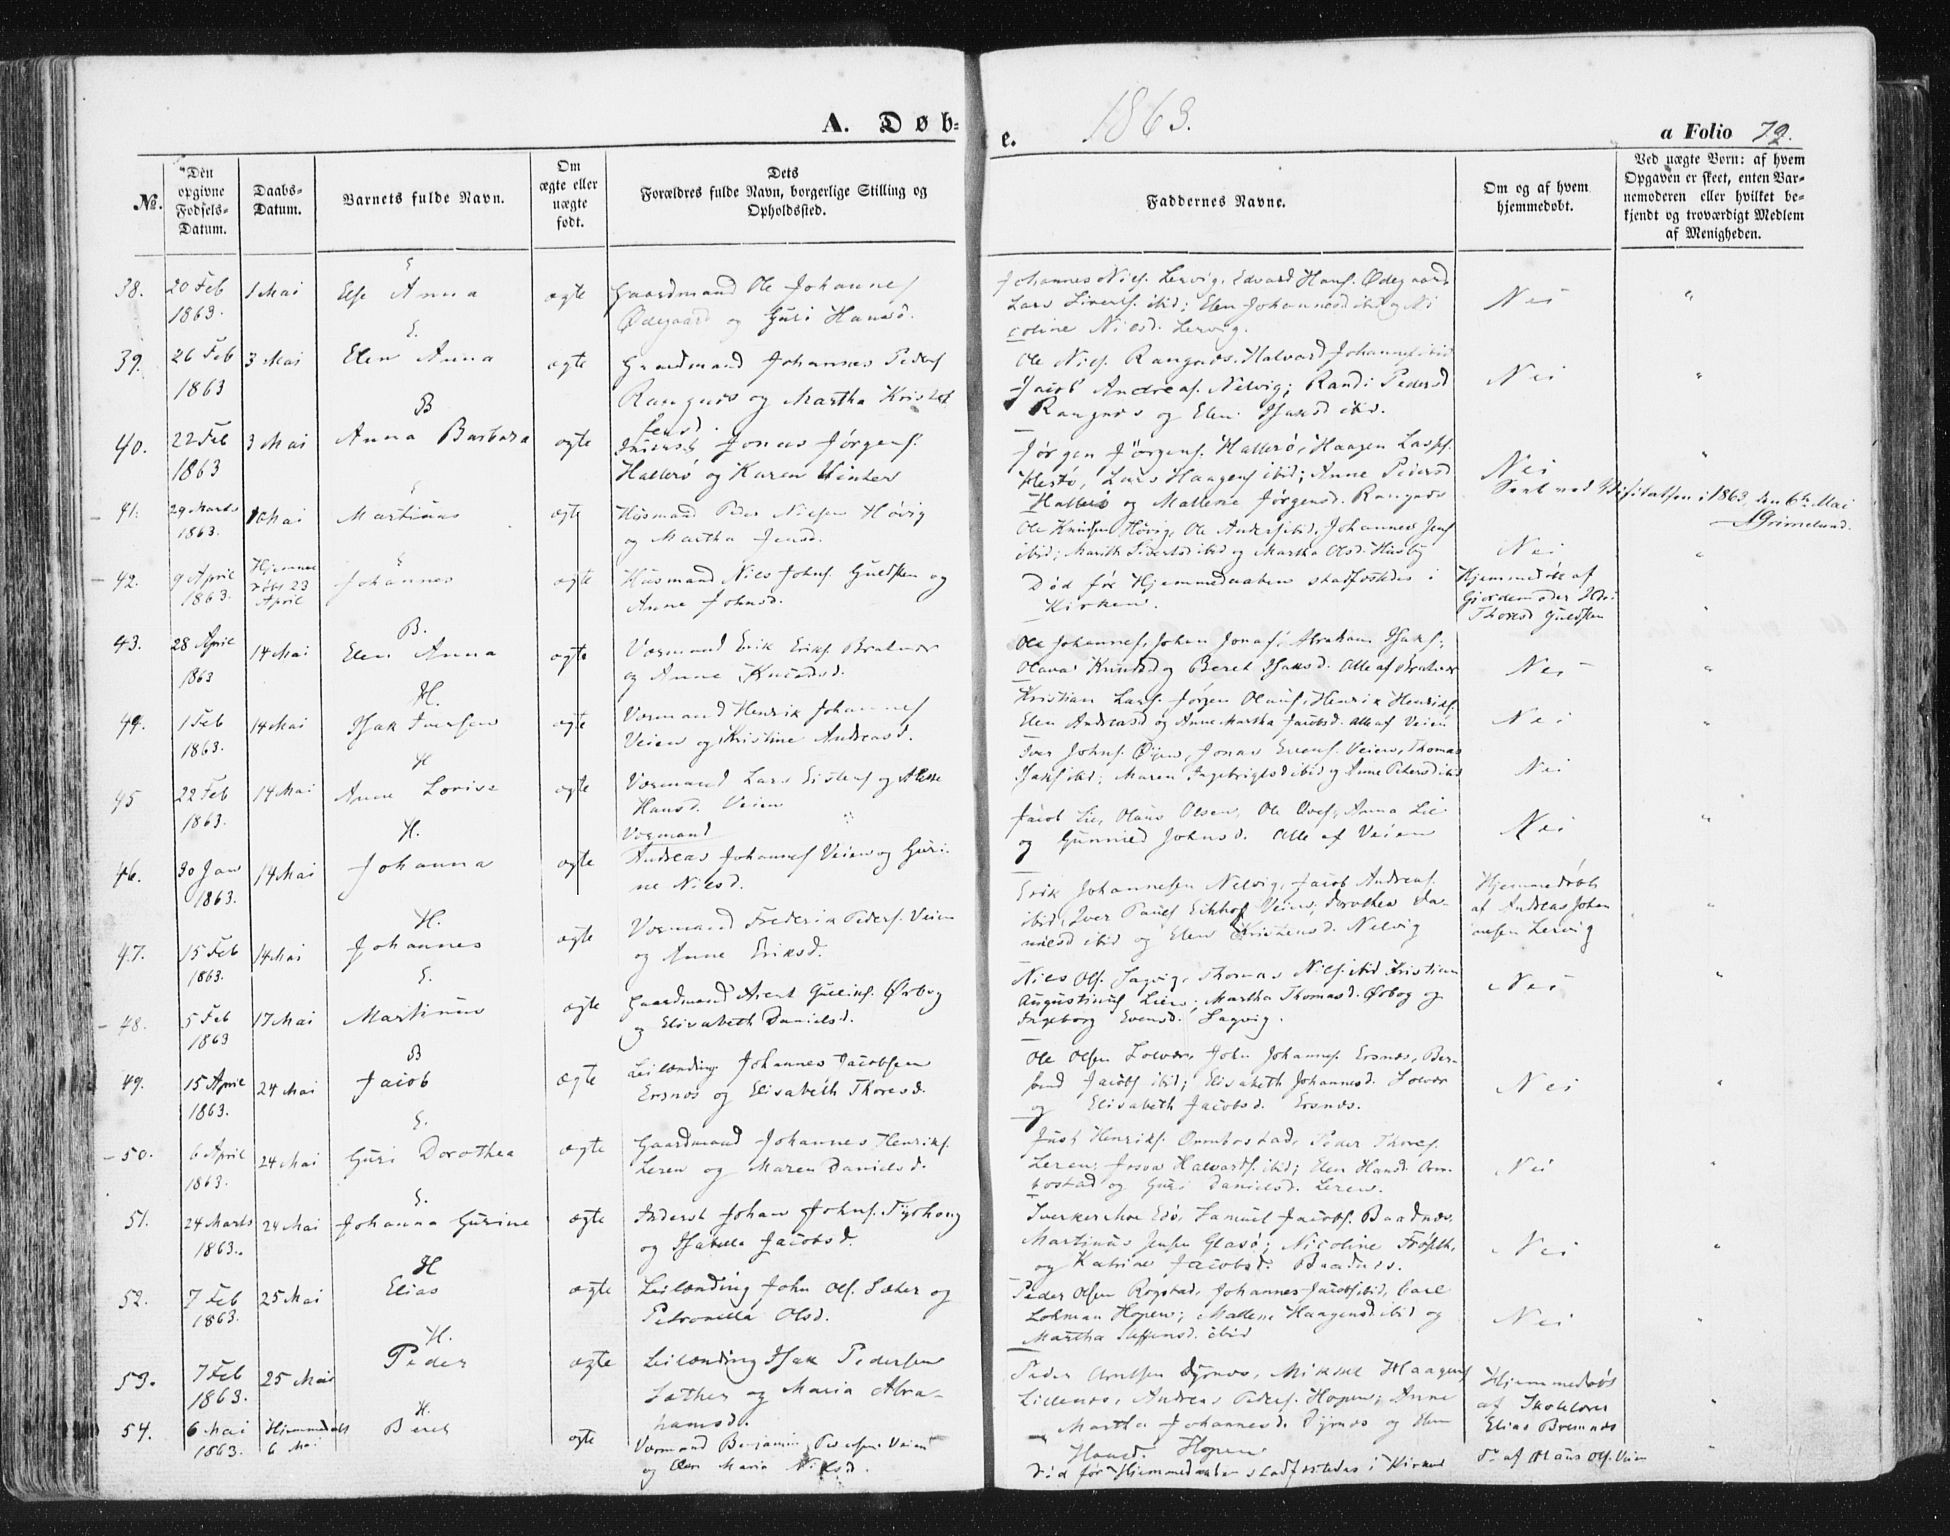 A. Døb-
e.
1863.
a Folio 72.
No.
Den opgivne Fødsels-Datum.
Daabs-Datum.
Barnets fulde Navn.
Om ægte eller uægte født.
Dets Forældres fulde Navn, borgerlige Stilling og Opholdssted.
Faddernes Navne.
Om og af hvem hjemmedøbt.
Ved uægte Børn: af hvem Opgaven er skeet, enten Barnemoderen eller hvilket bekjendt og troværdigt Medlem af Menigheden.
38. 20 Feb 1863. 1 Mai E Else Anna ægte Gaardmand Ole Johannes
Ødegaard og Guri Hansd.
Johannes Niels. Lervig, Edvard Hans. Ødegaard
Lars Siverts. ibid; Elen Johannesd ibid og Ni
coline Nilsd. Lervig. Nei "
39. 26 Feb 1863 3 Mai E. Elen Anna ægte Gaardmand Johannes Peders
Rangnæs og Martha Kristof
fersd.
Ole Niels. Rangnæs, Halvard Johannes ibid
Jacob Andreas. Nelvig; Randi Pedersd
Rangnæs og Elen Isaksd ibid. Nei "
40. 22 Feb 1863 3 Mai B Anna Barbara ægte Inderst Jonas Jørgens.
Hallerø og Karen Winter
Jørgen Jørgens. Hallerø, Haagen Larss.
Hestø, Lars Haagens ibid; Anne Pedersd
Hallerø og Mallene Jørgensd. Rangnæs Nei "
Seet ved Visitatsen i 1863, den 6te Mai
Grimelund.
41. 29 Marts 1863. 10 Mai E Martinus ægte Husmand Peder Nielsen Høvig
og Martha Jensd.
Ole Knudsen Høvig, Ole Anders ibid, Johannes Jens
ibid; Marith Sivertsd ibid og Martha Olsd. Husby Nei "
42. 9 April 1863. Hjemmedøbt 23 April E Johannes ægte Husmand Niels Johns. Guldsten og
Anne Johnsd.
Død før Hjemmedaaben stadfæstedes i
Kirken.
Hjemmedøbt af
Gjordemoder
Thoresd Guldsten "
43. 28 April 1863 14 Mai B. Elen Anna ægte Værmand Erik Eriks. Bratvær
og Anne Knudsd.
Ole Johannes, Johan Jonas, Abraham Isaks;
Olava Knudsd og Beret Isaksd. Alle af Bratvær Nei "
44. 1 Feb 1863. 14 Mai H. Isak Iversen ægte Værmand Henrik Johannes
Veien og Kristine Andreasd.
Kristian Lars. Jørgen Olaus, Henrik Henriks.
Elen Andreasd og Anne Martha Jacobsd. Alle af Veien Nei "
45 22 Feb 1863. 14 Mai H Anne Lovise ægte Værmand Lars Eistens og
Hansd. Veien
Iver Johns. Øien, Jonas Evens. Veien, Thomas
Isaks ibid; Maren Ingebrigtsd ibid og Anne Petersd ibid Nei "
46. 30 Jan 1863. 14 Mai H. Johanna ægte Værmand
Andreas Johannes Veien og Guri-
ne Nilsd.
Jacob Lie, Olaus Olsen, Ole Oves, Anna Lie
og Gunnied Johnsd. Alle af Veien Nei "
47. 15 Feb 1863. 14 Mai H. Johannes ægte Værmand Frederik Peders. Veien
og Anne Eriksd.
Erik Johannesen Nelvig, Jacob Andreas.
ibid, Iver Pauls Eikhof Veien, Dorothea Da-
nielsd ibid og Elen Kristensd. Nelvig
Hjemmedøbt
af Andreas Johan
nesen Lervig "
48. 5 Feb 1863 17 Mai E. Martinus ægte Gaardmand Arent Gullius. Ørbog
og Elisabeth Danielsd.
Niels Ols. Sagvig, Thomas Niels. ibid Kristian
Augustinus Lien; Martha Thomasd. Ørbog og
Ingeborg Evensd. Sagvig. Nei "
49. 15 April 1863. 24 Mai B Jacob ægte Leilænding Johannes Jacobsen
Ersnes og Elisabeth Thoresd.
Ole Olsen Solvær, John Johannes. Ersnæs, Ber-
hend Jacobs ibid; Elisabeth Johannesd. Solvær
og Elisabeth Jacobsd. Ersnæs. Nei "
50. 6 April 1863. 24 Mai E. Guri Dorothea ægte Gaardmand Johannes Henriks.
Leren og Maren Danielsd.
Just Henriks. Ormbostad, Peder Thores.
Leren, Josva Halvards. ibid; Elen Hansd. Orm-
bostad og Guri Danielsd. Leren. Nei "
51. 24 Marts 1863. 24 Mai E. Johanna Gurine ægte Inderst Johan Johns. Tyshoug
og Isabella Jacobsd.
Edø, Samuel Jacobs. Baadnæs,
Martinus Jensen Glasø; Nicoline Frøseth,
og Katrine Jacobsd. Baadnæs. Nei "
52. 7 Feb 1863. 25 Mai H Elias ægte Leilænding John Ols. Sæter og
Petronella Olsd.
Peder Olsen Rogstad, Johannes Jacobs ibid, Carl
Lohman Hopen; Mallene Haagensd ibid og
Martha Steffensd. ibid Nei "
53. 7 Feb 1863. 25 Mai H. Peder ægte Leilænding Isak Pedersen
Sæther og Maria Abra-
hamsd.
Peder Arntsen Dyrnæs, Mikkel Haagens
Lillenæs, Andreas Peders. Hopen; Anne
Martha Johannesd. Dyrnæs og
Hansd. Hopen
Hjemmedøbt
af Skolelærer
Elias Bremnæs "
54. 6 Mai 1863. Hjemmedøbt 6 Mai H. Beret ægte Værmand Benjamin Pedersen Veien
og Elen Maria Nilsd.
Død før Hjemmedaaben stadfæstedes i Kirken
do af Olaus Ols. Veien "